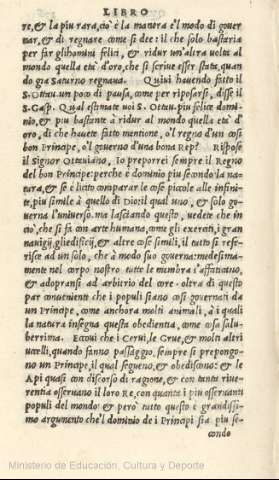 LIBRO
re, & la piu rara, cio' è la manera e'l modo di gouer
nar, & di regnare come si dee: il che solo bastaria
per far glihomini felici, & ridur un'altra uolta al
mondo quella età d'oro, che si scriue esser stata, quan
do gia Saturno regnaua. Quiui hauendo fatto il
S. Ottau. un poco di pausa, come per riposarsi, disse il
S. Gasp. Qual estimate uoi S. Ottau. piu felice domi-
nio, & piu bastante à ridur al mondo quella età d'
oro, di che hauete fatto mentione, o'l regno d'un cosi
bon Principe, o'l gouerno d'una bona Rep? Rispose
il signor Ottauiano, Io preporrei sempre il Regno
del bon Principe: perche è dominio piu secondo la na
tura, & se è licito comparar le cose piccole alle infini-
te, piu simile à quello di Dio: il qual uno, & solo go-
uerna l'uniuerso. ma lasciando questo, uedete che in
ciò, che si fa con arte humana, come gli exerciti, i gran
nauigij, gliedificij, & altre cose simili, il tutto si refe-
risce ad un solo, che à modo suo gouerna: medesima-
mente nel corpo nostro tutte le membra s'affaticano,
& adopransi ad arbitrio del core. oltra di questo
par conueniente che i populi siano cosi gouernati da
un Principe, come anchora molti animali, à i quali
la natura insegna questa obedientia, come cosa salu-
berrima. Eccoui che i Cerui, le Grue, & molti altri
uccelli, quando fanno passaggio, sempre si prepongo-
no un Principe, il qual segueno, & obediscono: & le
Api quasi con discorso di ragione, & con tanta riue-
rentia osseruano il loro Re, con quanta i piu osseruanti
populi del mondo: & però tutto questo è grandissi-
mo argumento che'l dominio de i Principi sia piu se-
condo
Ministerio de Educación, Cultura y Deporte